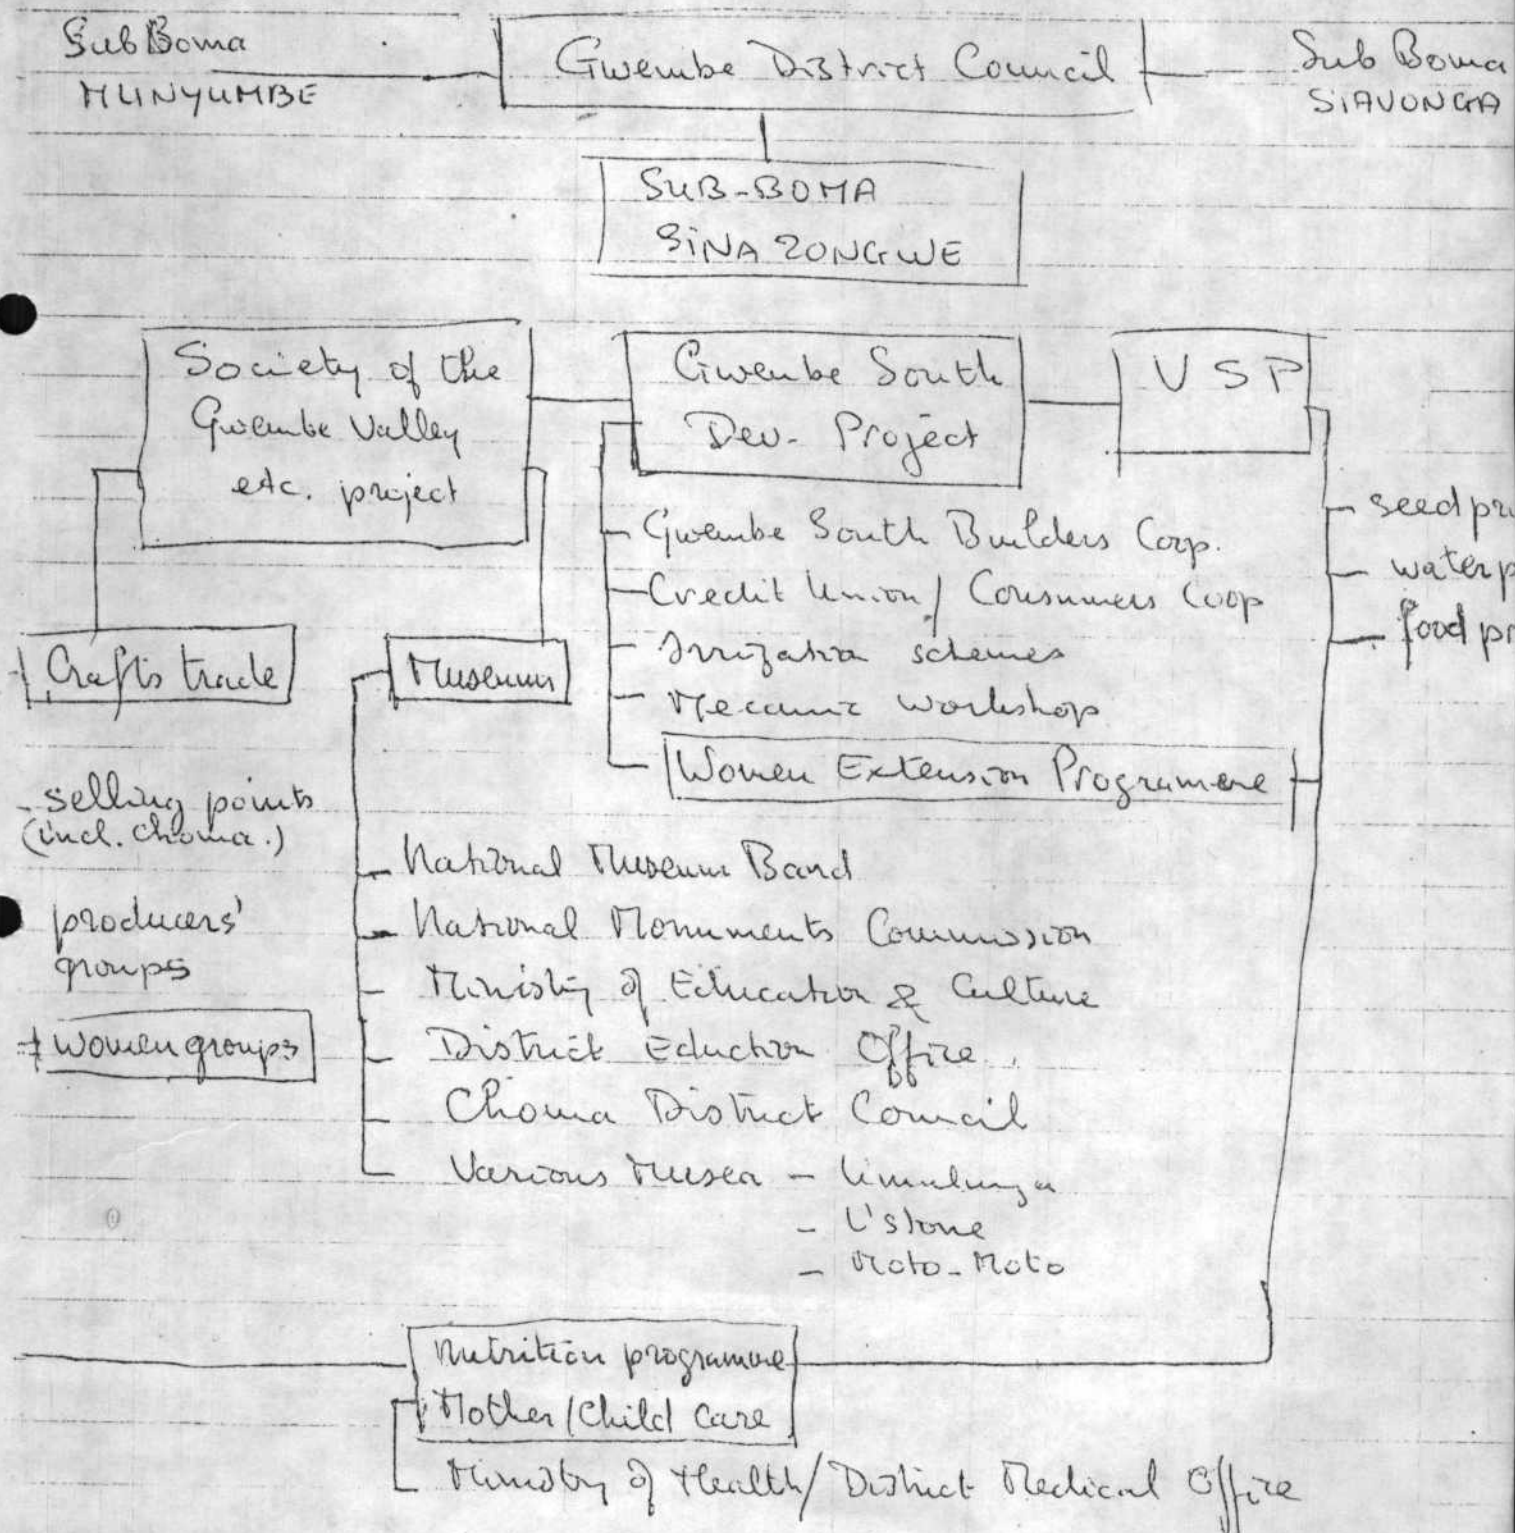 Sub Boma
MUNYUMBE
Gwembe District Council
Sub Boma
SIAVONGA
SUB-BOMA
SINAZONGWE
Society of the
Gwembe Valley
etc. project
Gwembe South
Dev. Project
VSP
Gwembe South Builders Corp.
Credit Union / Consumers Coop
Irrigation schemes
Mecanic workshop
Women Extension Programme
- seed pr
- water p
- food pr
Crafts trade
Museum
- selling points
(incl. Choma.)
producers'
groups
women groups
- National Museum Board
- National Monuments Commission
- Ministry of Education & Culture
- District Eduction Office
- Choma District Council
- Various Musea -
- L'stone
- Moto-Moto
Nutrition programme
Mother/Child Care
Ministry of Health/District Medical Office